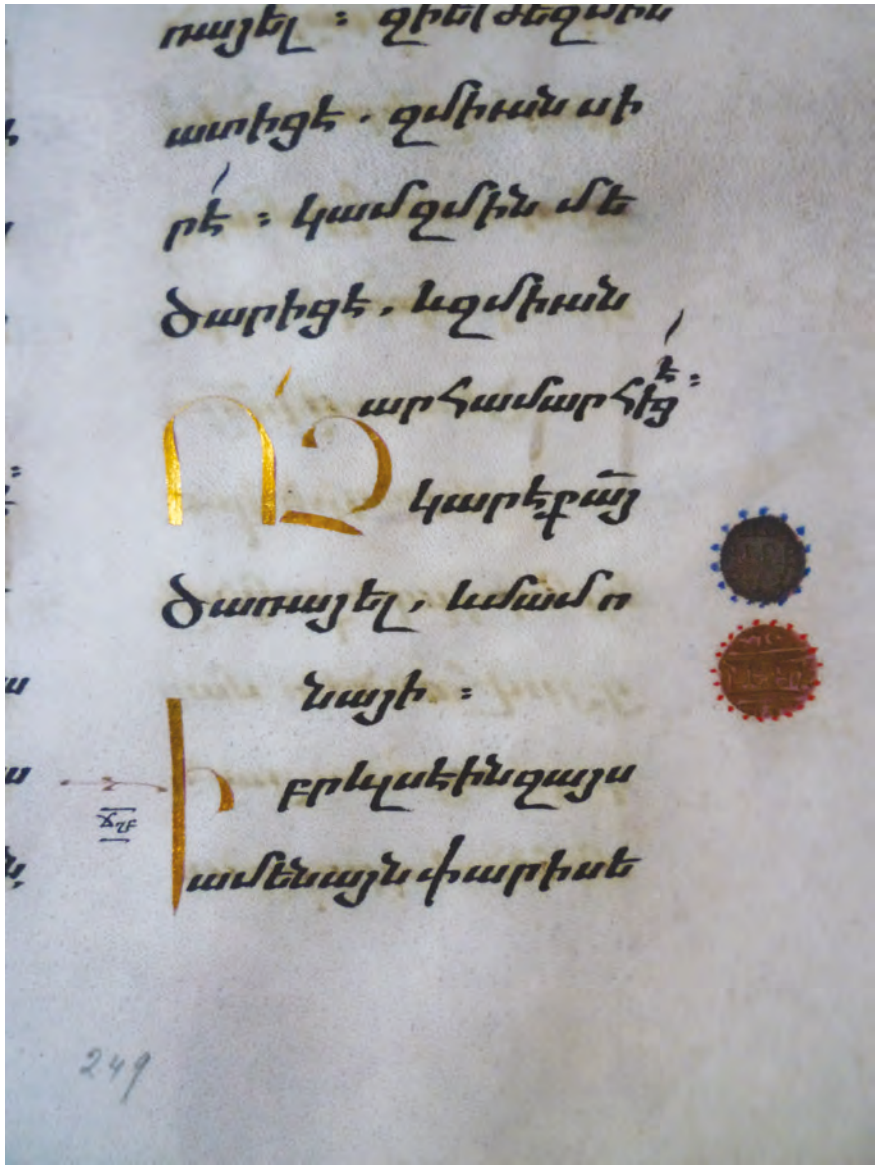 ռայել ։ զի եթե զմին
ատիցէ . զմիւսն սի
րէ՛ ։ կամ զմին մե
ծարիցէ , և զմիւսն
արհամարհիցէ՛ ։
Ո՛չ կարէք ա՟յ
ծառայել , և մամո
նայի ։
Իբրև լսէին զայս
ՃՂԲ
ամենայն փարիսե
249